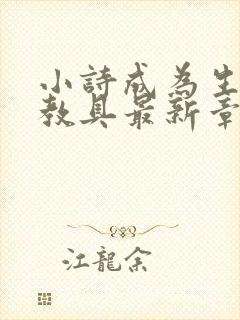 小詩成為生
教具最新章
江龍余